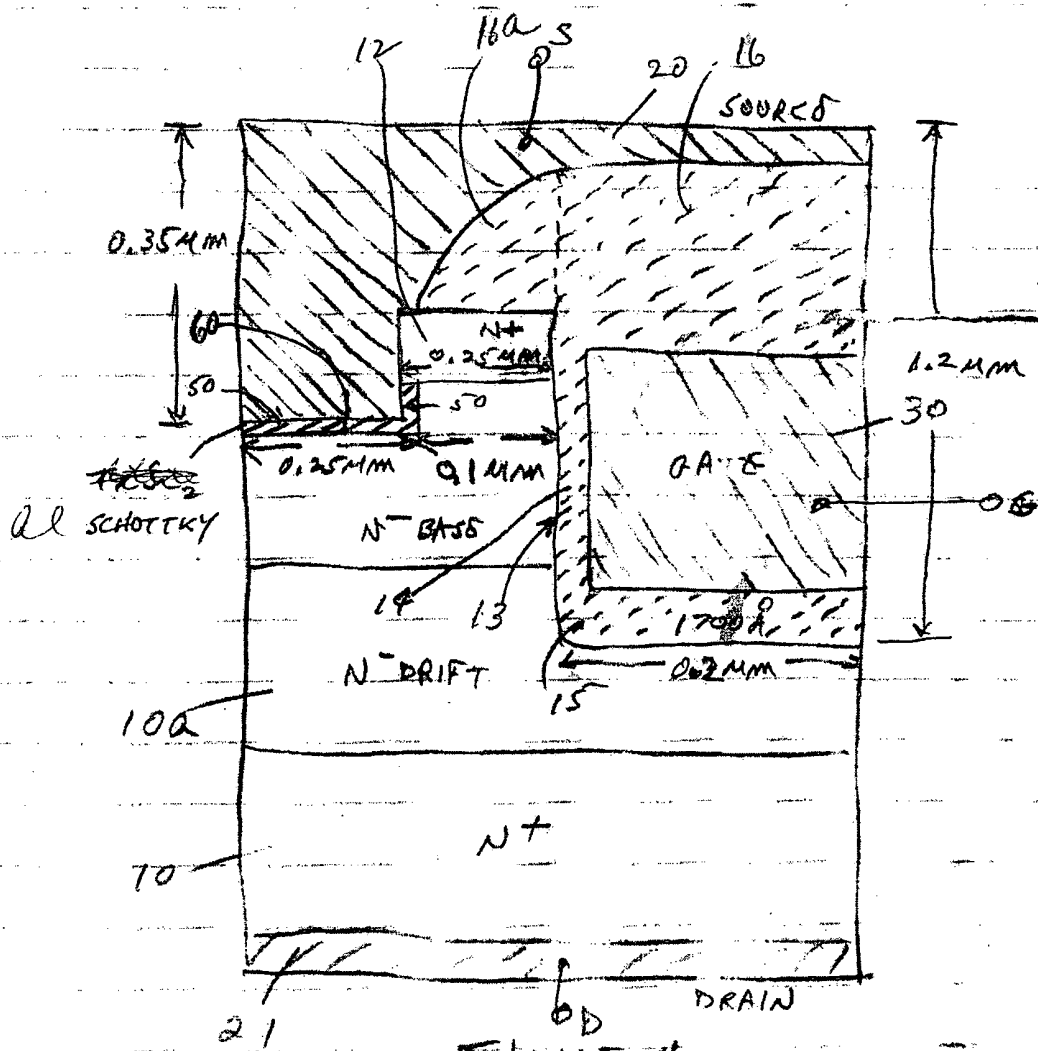 12
16a
S
20
16
SOURCE
0.35 µm
N+
0.25 µm
60
50
50
1.2 µm
30
0.25 µm
0.1 µm
GATE
G
Al SCHOTTKY
N- BASE
14
13
1700 Å
0.2 µm
N- DRIFT
15
10a
N+
70
DRAIN
21
D